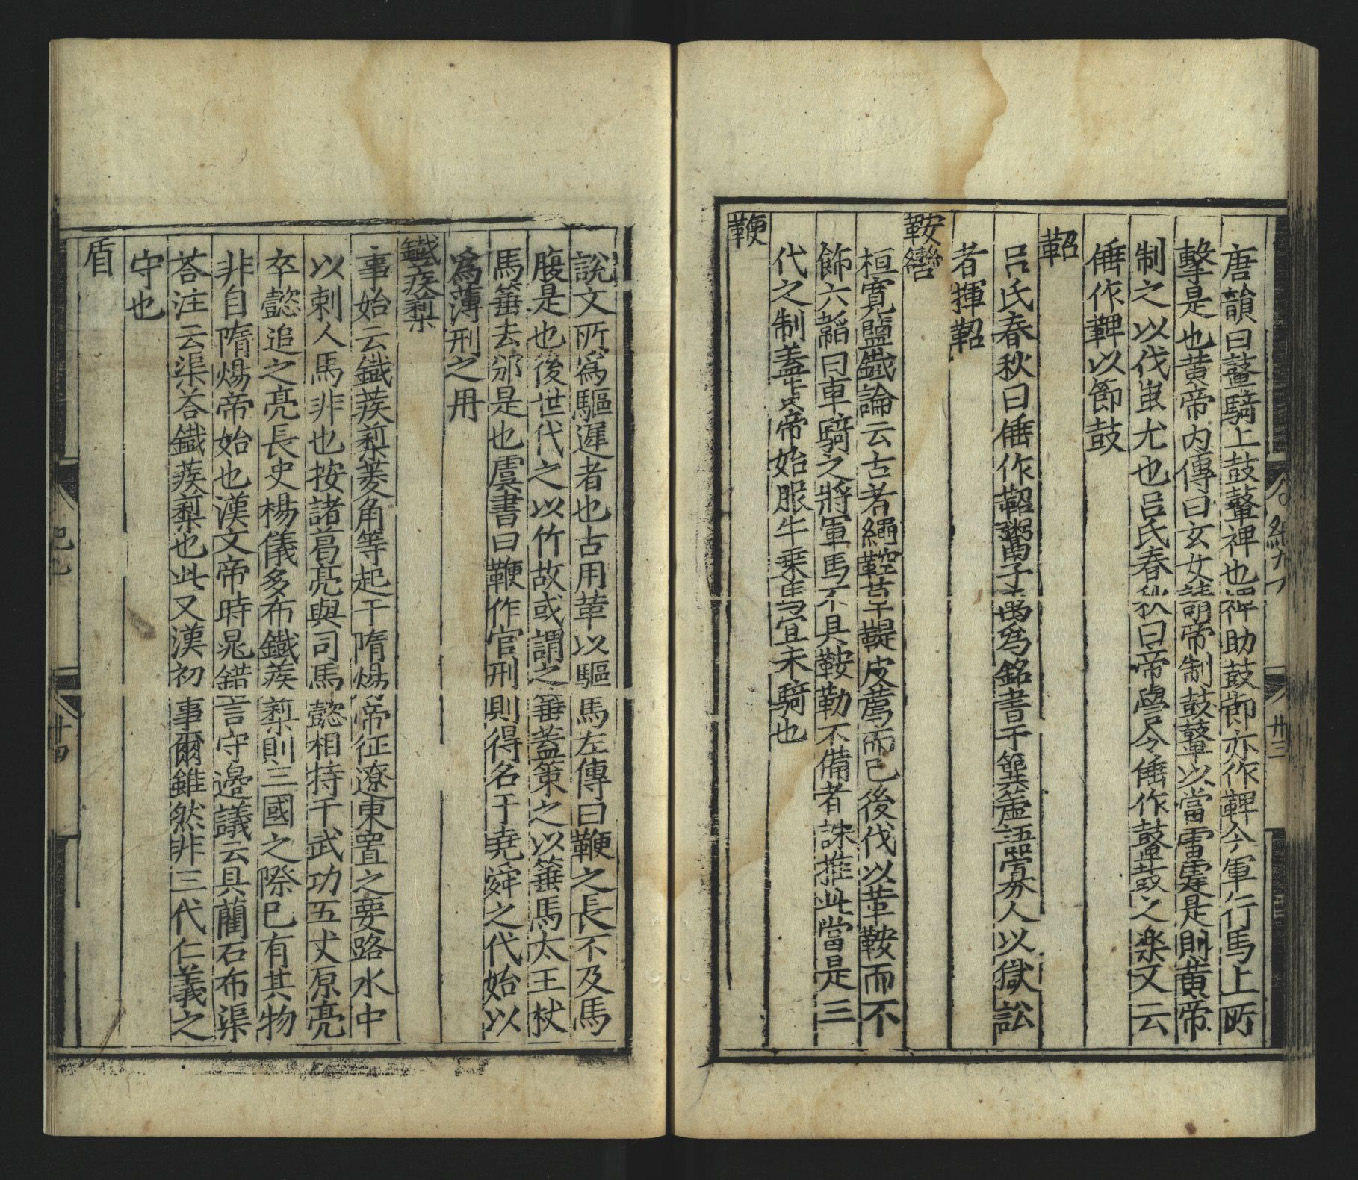 唐韻曰鼛騎上鼓鼙裨也裨助鼓節亦作鞞今軍行馬上所
擊是也黄帝内傳曰玄女請帝制鼓鼙以當雷霆是則黄帝
制之以伐蚩尤也吕氏春秋曰帝嚳令倕作鼓鼙之樂又云
倕作鞞以節鼓
鞀
吕氏春秋曰倕作鞀鬻子禹爲銘書于簨簴語寡人以獄訟
者揮鞀
鞍轡
桓寛鹽鐵論云古者繩鞚草鞮皮薦而已後代以革鞍而不
飾六韜曰車騎之將軍馬不具鞍勒不備者誅推此當是三
代之制蓋黄帝始服牛乗馬宜未騎也
鞭
說文所爲驅遲者也古用革以驅馬左傳曰鞭之長不及馬
腹是也後世代之以竹故或謂之箠蓋策之以箠馬太王杖
馬箠去邠是也虞書曰鞭作官刑則得名于堯舜之代始以
爲薄刑之用
鐵疾梨
事始云鐵蒺梨菱角等起于隋煬帝征遼東置之要路水中
以刺人馬非也按諸葛亮與司馬懿相持于武功五丈原亮
卒懿追之亮長史楊儀多布鐵蒺梨則三國之際已有其物
非自隋煬帝始也漢文帝時晁錯言守邊議云具藺石布渠
荅注云渠荅鐵蒺梨也此又漢初事爾雖然非三代仁義之
守也
盾
紀九
廿三
廿四